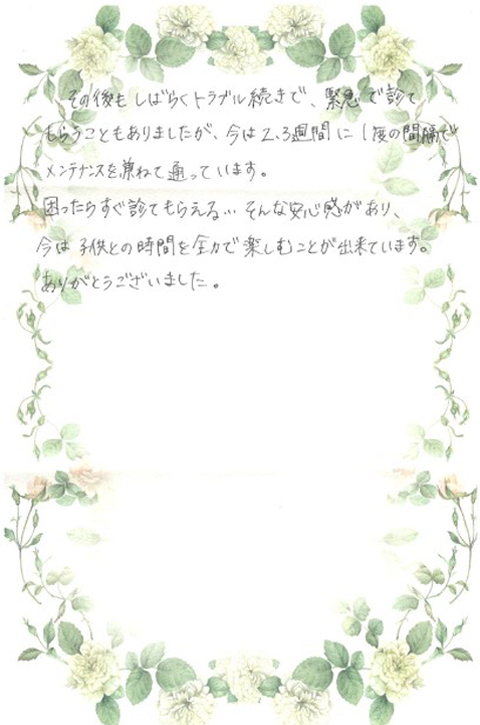 その後もしばらくトラブル続きで、緊急で診て
もらうこともありましたが、今は2,3週間に1度の間隔で
メンテナンスを兼ねて通っています。
困ったらすぐ診てもらえる… そんな安心感があり、
今は子供との時間を全力で楽しむことが出来ています。
ありがとうございました。